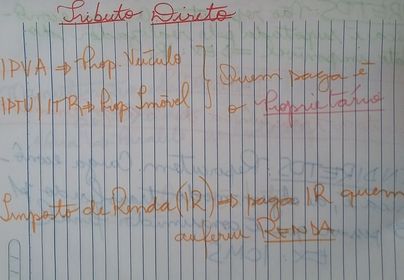 Tributo Direto
IPVA → Prop. Veículo
IPTU/ITR → Prop Imóvel
Quem paga é
o Proprietário
Imposto de Renda (IR) → paga IR quem
auferiu RENDA